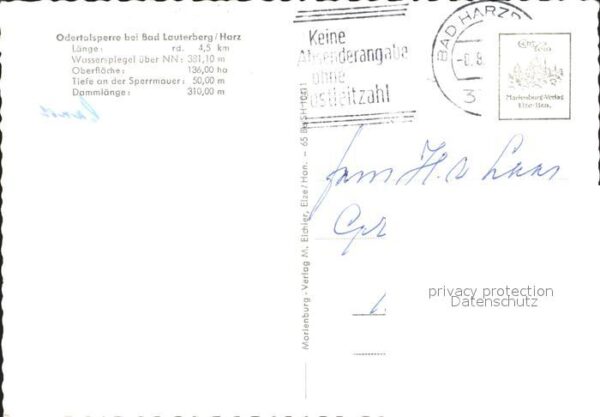 Odertalsperre bei Bad Lauterberg/Harz
Länge: rd. 4,5 km
Wasserspiegel über NN: 381,10 m
Oberfläche: 136,00 ha
Tiefe an der Sperrmauer: 50,00 m
Dammlänge: 310,00 m
Keine
Absenderangabe
ohne
Postleitzahl
BAD HARZB
3
Echt
Foto
Marienburg-Verlag
Elze-Han.
Marienburg-Verlag M. Eichler, Elze/Han. - 65 Ba SH
fam H. v Laar
privacy protection
Datenschutz